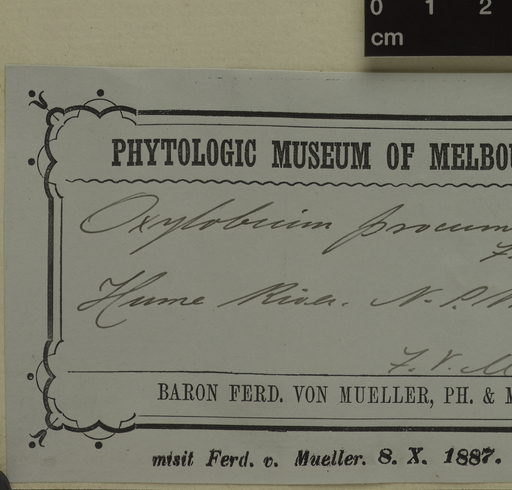 0 1 2
cm
PHYTOLOGIC MUSEUM OF MELBOU
Oxylobium procum
F.
Hume River. N. P. M
F. V. M
BARON FERD. VON MUELLER, PH. & M
misit Ferd. v. Mueller. 8. X. 1887.